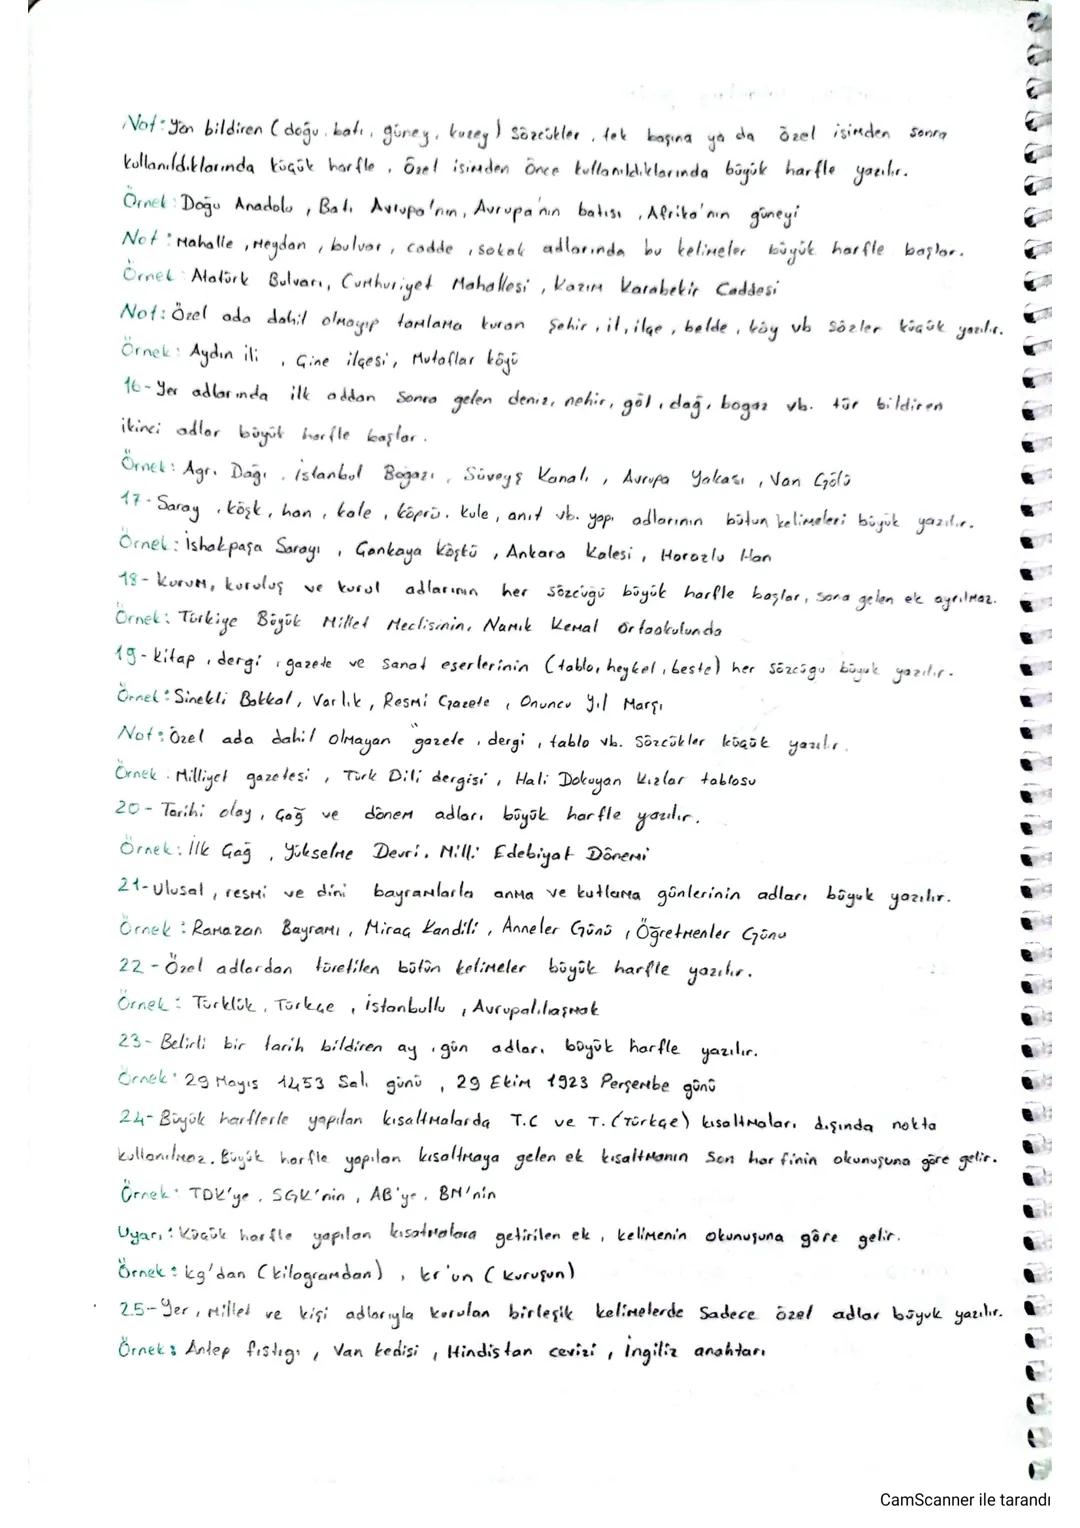 Not: Yön bildiren (doğu, batı, güney, kuzey) Sözcükler, tek başına ya da özel isimden sonra
kullanıldıklarında küçük harfle, Özel isimden önce kullanıldıklarında büyük harfle yazılır.
Örnek: Doğu Anadolu, Batı Avrupa'nın, Avrupa'nın batısı, Afrika'nın güneyi
Not: Mahalle, Meydan, bulvar, cadde, sokak adlarında bu kelimeler büyük harfle başlar.
Örnek: Atatürk Bulvarı, Cumhuriyet Mahallesi, Kazım Karabekir Caddesi
Not: Özel ada dahil olmayıp tamlama kuran şehir, il, ilçe, belde, köy vb sözler küçük yazılır.
Örnek: Aydın ili, Çine ilçesi, Mutaflar köyü
16- Yer adlarında ilk addan sonra gelen deniz, nehir, göl, dağ, bogaz vb. tür bildiren
ikinci adlar büyük harfle başlar.
Örnek: Agrı Dağı, İstanbul Bogazı, Süveyş Kanalı, Avrupa Yakası, Van Gölü
17- Saray, köşk, han, kale, köprü, kule, anıt vb. yapı adlarının bütün kelimeleri büyük yazılır.
Örnek: İshakpaşa Sarayı, Çankaya Köşkü, Ankara Kalesi, Horozlu Han
18- Kurum, kuruluş ve kurul adlarının her sözcüğü büyük harfle başlar, sona gelen ek ayrılmaz.
Örnek: Türkiye Büyük Millet Meclisinin, Namık Kemal Ortaokulunda
19- kitap, dergi, gazete ve sanat eserlerinin (tablo, heykel, beste) her sözcügü büyük yazılır.
Örnek: Sinekli Bakkal, Varlık, Resmi Gazete, Onuncu Yıl Marşı
Not: Özel ada dahil olmayan gazete, dergi, tablo vb. Sözcükler küçük yazılır.
Örnek: Milliyet gazetesi, Türk Dili dergisi, Hali Dokuyan Kızlar tablosu
20- Tarihi olay, Çağ ve dönem adları büyük harfle yazılır.
Örnek: İlk Çağ, Yükselme Devri, Milli Edebiyat Dönemi
21- Ulusal, resmi ve dini bayramlarla anma ve kutlama günlerinin adları büyük yazılır.
Örnek: Ramazan Bayramı, Miraç Kandili, Anneler Günü, Öğretmenler Günü
22- Özel adlardan türetilen bütün kelimeler büyük harfle yazılır.
Örnek: Türklük, Türkçe, istanbullu, Avrupalılaşmak
23- Belirli bir tarih bildiren ay, gün adları büyük harfle yazılır.
Örnek: 29 Mayıs 1453 Salı günü, 29 Ekim 1923 Perşembe günü
24- Büyük harflerle yapılan kısaltmalarda T.C ve T. (Türkçe) kısaltmaları dışında nokta
kullanılmaz. Büyük harfle yapılan kısaltmaya gelen ek kısaltmanın Son harfinin okunuşuna göre gelir.
Örnek: TDK'ye, SGK'nin, AB'ye, BM'nin
Uyarı: Küçük harfle yapılan kısatmalara getirilen ek, kelimenin okunuşuna göre gelir.
Örnek: kg'dan (kilogramdan), kr'un (Kuruşun)
25- Yer, Millet ve kişi adlarıyla kurulan birleşik kelimelerde Sadece özel adlar büyük yazılır.
Örnek: Antep fıstıgı, Van kedisi, Hindistan cevizi, İngiliz anahtarı
CamScanner ile tarandı